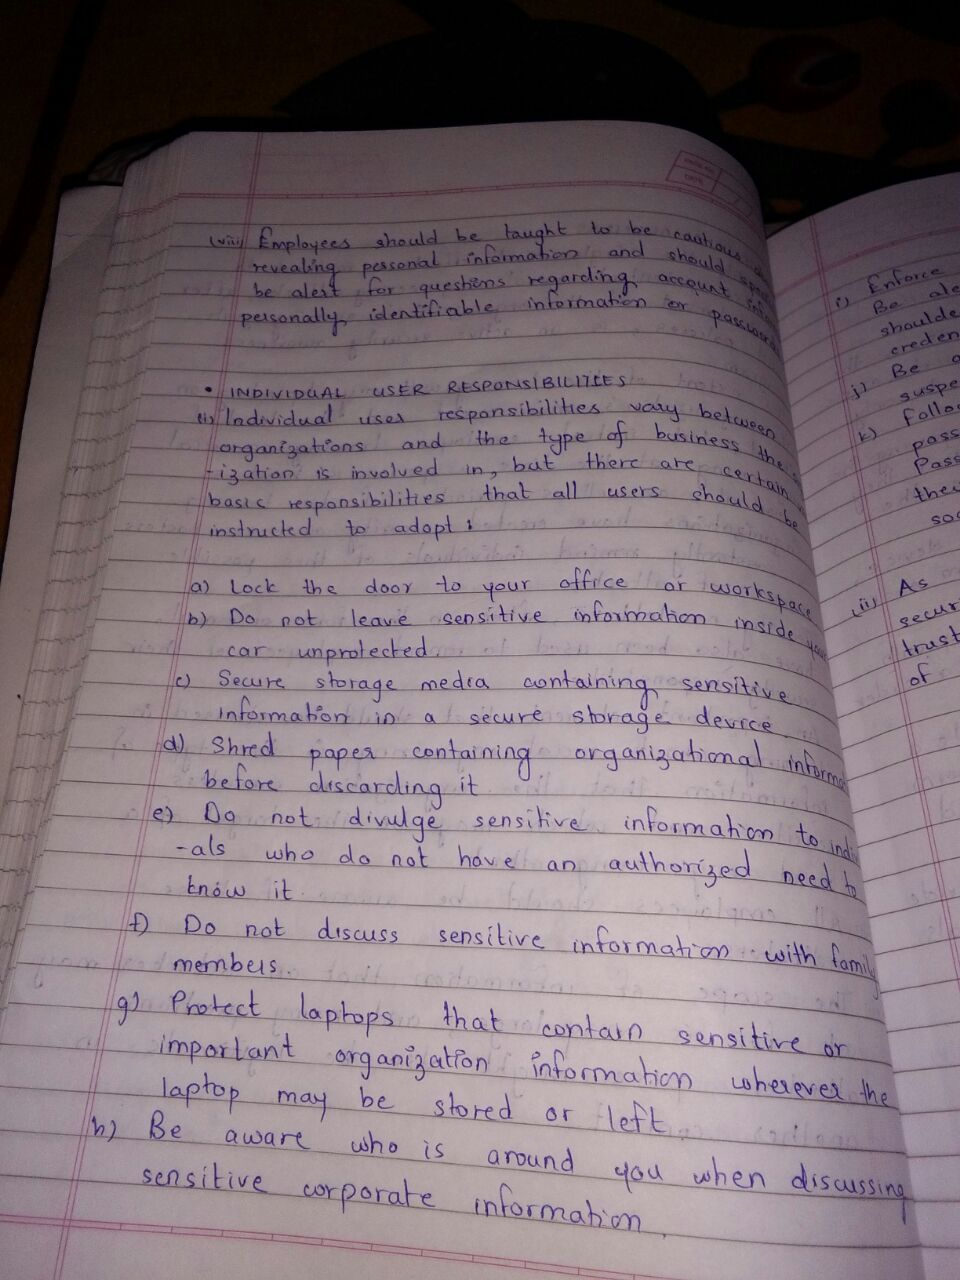 (viii) Employees should be taught to be cautious
revealing personal information and should
be alert for questions regarding account
personally identifiable information or
• INDIVIDUAL USER RESPONSIBILITIES
Individual user responsibilities vary between
organizations and the type of business the
-ization is involved in, but there are certain
basic responsibilities that all users should be
instructed to adopt :
a) Lock the door to your office or workspace
b) Do not leave sensitive information inside
car unprotected
c) Secure storage media containing sensitive
information in a secure storage device.
d) Shred paper containing organizational
before discarding it
e) Do not divulge sensitive information to
-als who do not have an authorized need to
know it.
f) Do not discuss sensitive information with family
members.
g) Protect laptops that contain sensitive or
important organization information wherever the
laptop may be stored or left.
h) Be aware who is around you when discussing
sensitive corporate information.
i) Enforce
Be
j) Be
k)
(ii) As
trust
of